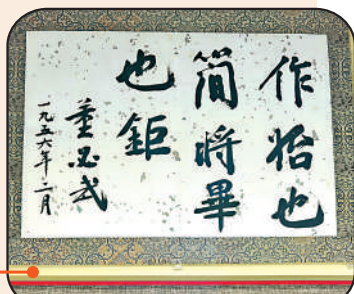 作始也
簡將畢
也鉅
董必武
一九五六年二月